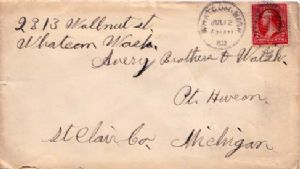 2813 Wallnut st.
Whatcom Wash.
Avery Brothers & Walsh.
Pt. Huron.
St Clair Co.
Michigan
WHATCOM, WASH.